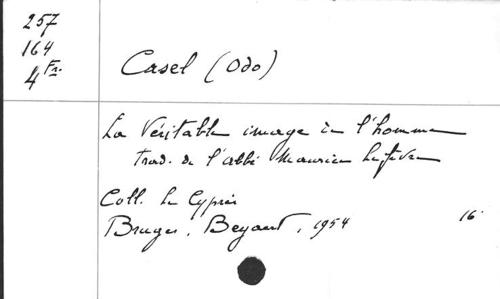 257
164
4 Fr.
Casel (Odo)
La Véritable image de l'homme
trad. de l'abbé Maurice Lefèvre
Coll. Le Cyprès
Bruges, Beyaert, 1954 16